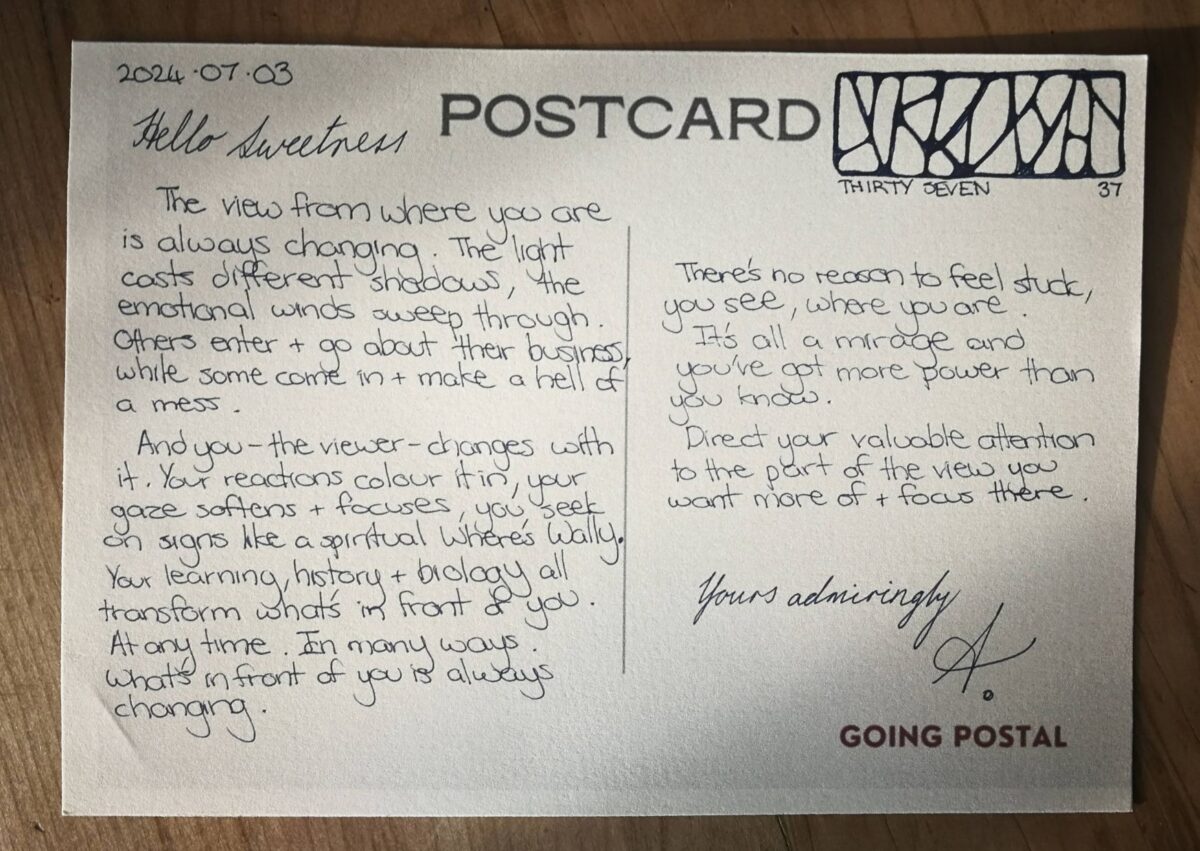 2024·07·03
Hello Sweetness
POSTCARD
THIRTY SEVEN 37
The view from where you are
is always changing. The light
casts different shadows, the
emotional winds sweep through.
Others enter + go about their business,
while some come in + make a hell of
a mess.
And you - the viewer - changes with
it. Your reactions colour it in, your
gaze softens + focuses, you seek
on signs like a spiritual Where's Wally.
Your learning, history + biology all
transform what's in front of you.
At any time. In many ways.
What's in front of you is always
changing.
There's no reason to feel stuck,
you see, where you are.
It's all a mirage and
you've got more power than
you know.
Direct your valuable attention
to the part of the view you
want more of + focus there.
Yours admiringly
A.
GOING POSTAL